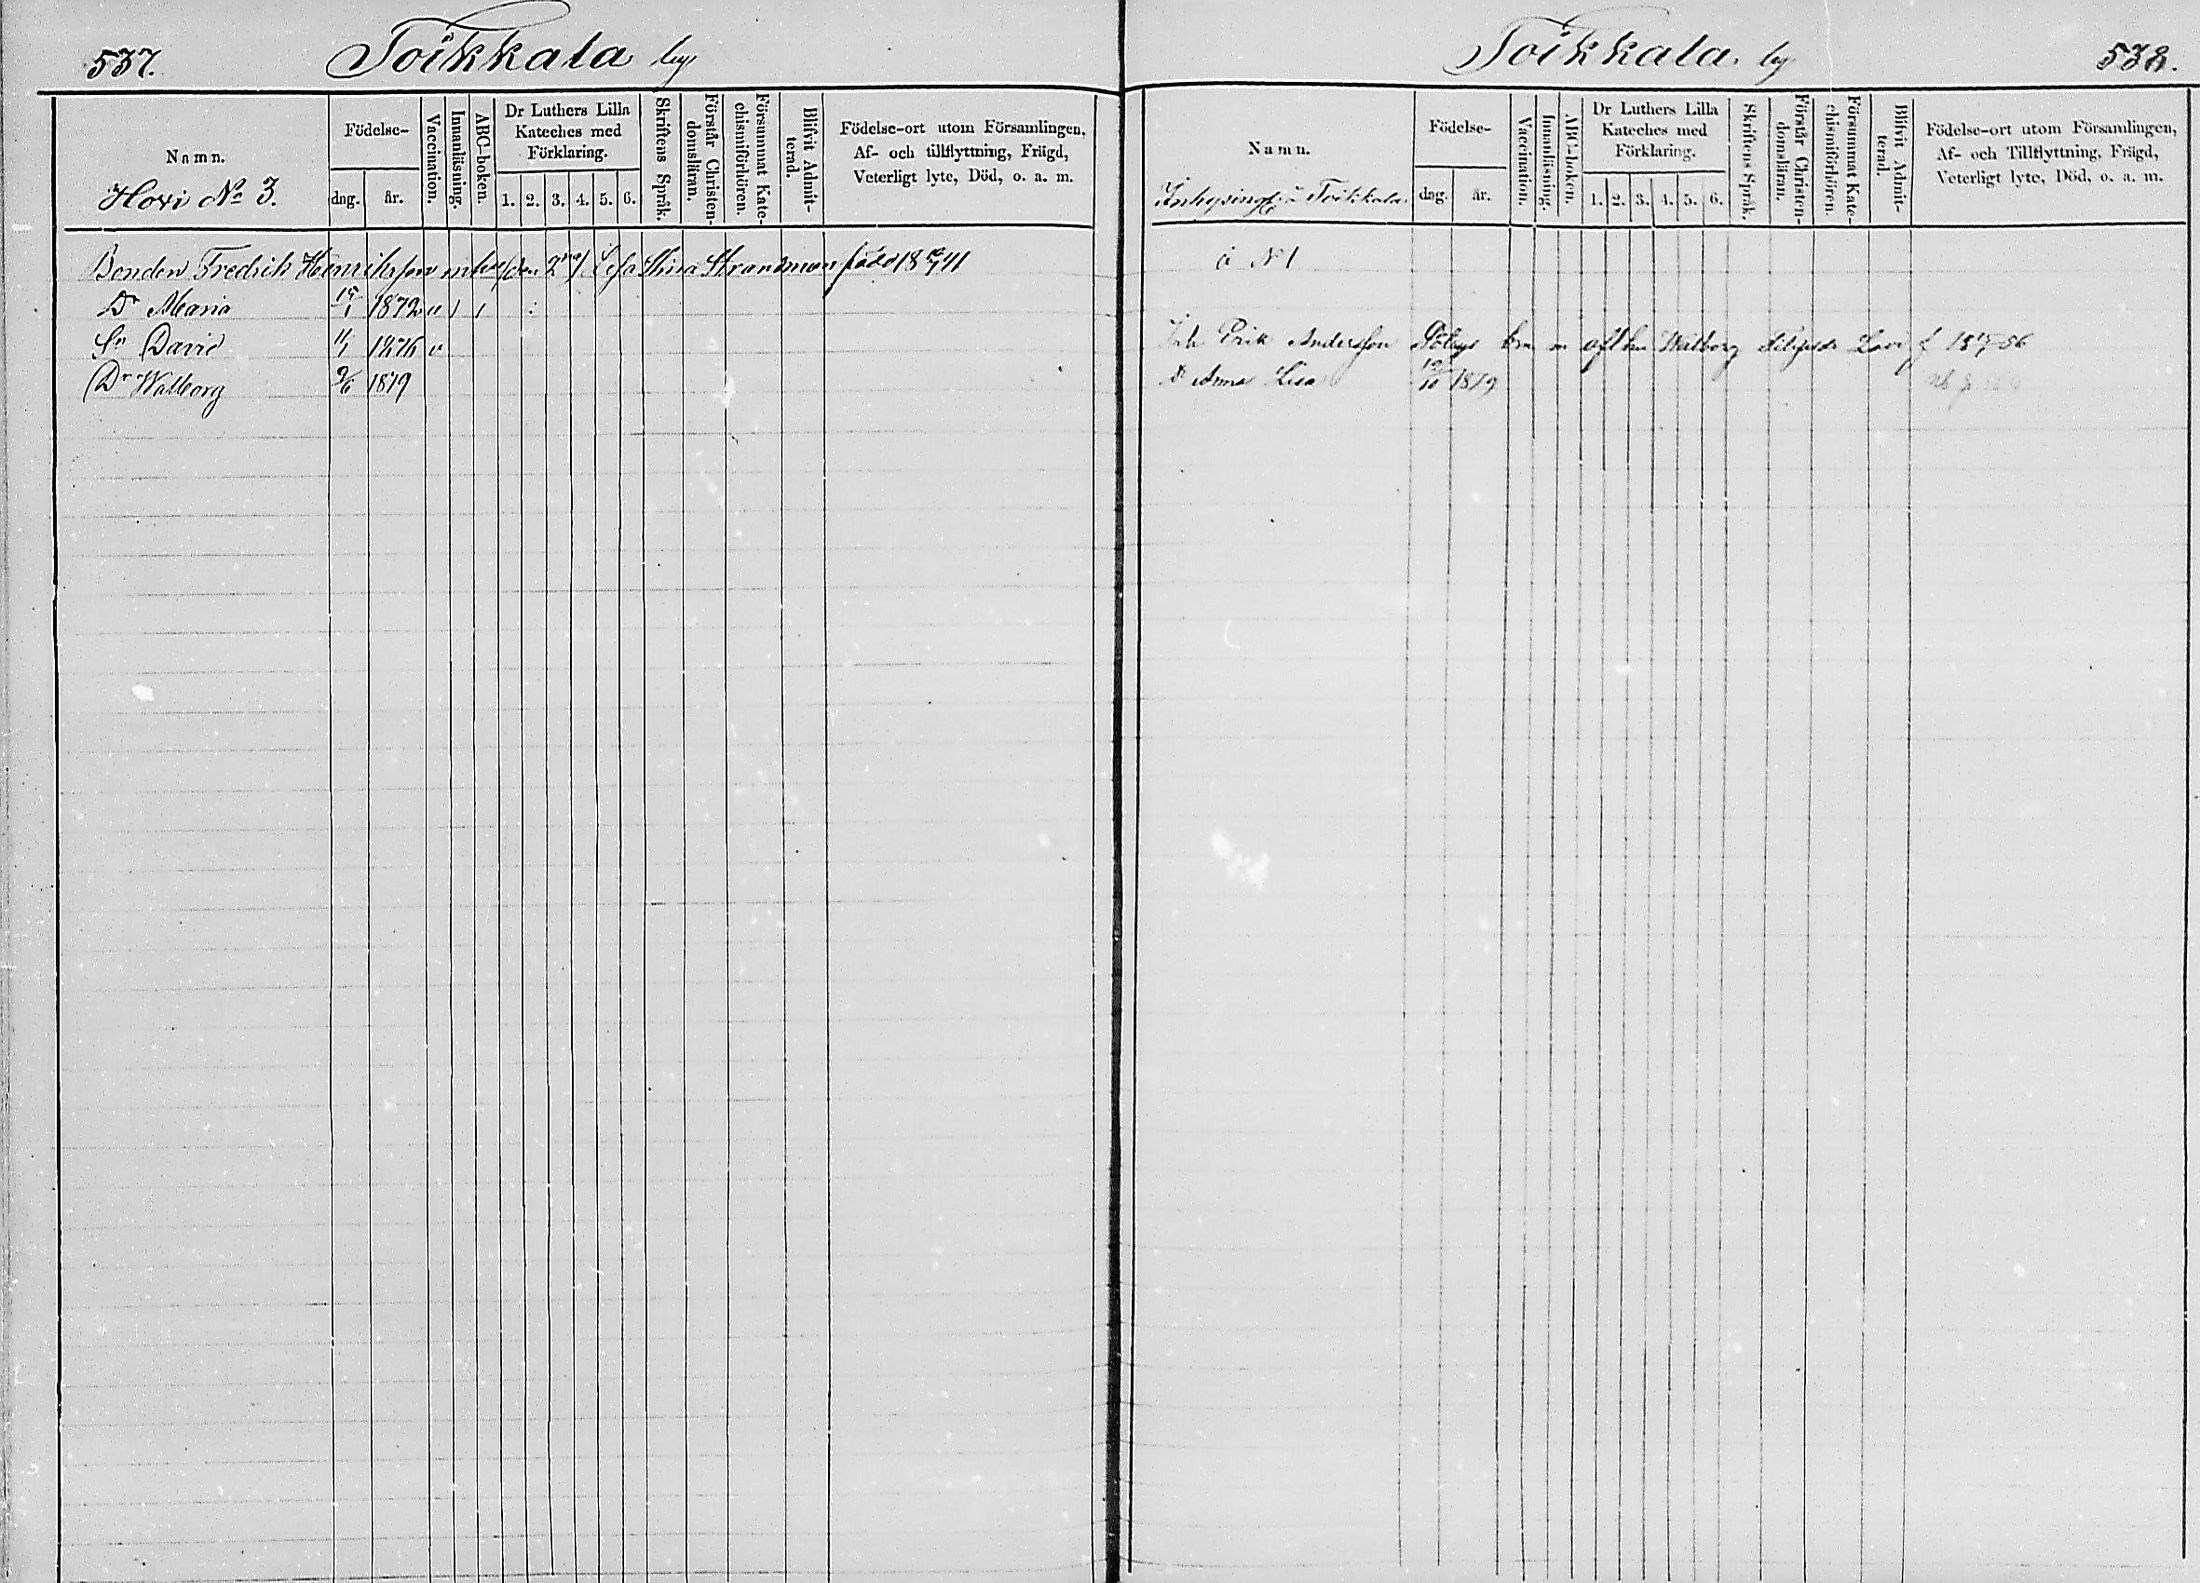 537.
Toikkala by
Namn.
Hovi No 3.
Födelse-
dag.
år.
Vaccination.
Innanläsning.
ABC-boken.
Dr Luthers Lilla
Kateches med
Förklaring.
1. 2. 3. 4. 5. 6.
Skriftens Språk.
Förstår Christen-
domsläran.
Försummat Kate-
chismiförhören.
Blifvit Admit-
terad.
Födelse-ort utom Församlingen,
Af- och tillflyttning, Frägd,
Veterligt lyte, Död, o. a. m.
Bonden Fredrik Henriksson m hu (den 2ne) Lisa Stina Strandman född 18 41
Dr Maria 15/1 1872
Sn David 11/1 1876 v
Dr Walborg 9/6 1879
Toikkala. by
538.
Namn.
Inhysing i Toikkala.
Födelse-
dag.
år.
Vaccination.
Innanläsning.
ABC-boken.
Dr Luthers Lilla
Kateches med
Förklaring.
1. 2. 3. 4. 5. 6.
Skriftens Språk.
Förstår Christen-
domsläran.
Försummat Kate-
chismiförhören.
Blifvit Admit-
terad.
Födelse-ort utom Församlingen,
Af- och Tillflyttning, Frägd,
Veterligt lyte, Död, o. a. m.
å N 1
Inh Erik Andersson m Walborg f 18 56
D Anna Lisa 1879